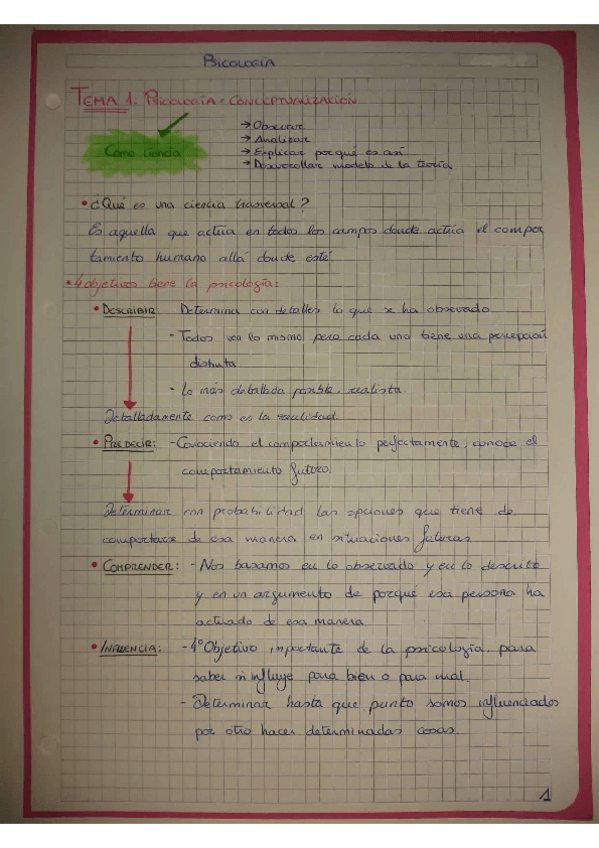 PSICOLOGÍA
TEMA 1: PSICOLOGÍA: CONCEPTUALIZACIÓN
Como Ciencia
→ Observar
→ Analizar
→ Explicar porqué es así
→ Desarrollar modelo de la teoría
• ¿Qué es una ciencia trasversal?
Es aquella que actúa en todos los campos donde actúa el compor
tamiento humano allá donde esté.
• 4 objetivos tiene la psicología:
• DESCRIBIR: Determina con detalles lo que se ha observado.
- Todos ven lo mismo pero cada uno tiene una percepción
distinta.
- Lo más detallada posible, realista.
Detalladamente como es la realidad.
• PREDECIR: - Conociendo el comportamiento perfectamente, conoce el
comportamiento futuro.
Determinar con probabilidad las opciones que tiene de
comportarse de esa manera en situaciones futuras
• COMPRENDER: - Nos basamos en lo observado y en lo descrito
y en un argumento de porqué esa persona ha
actuado de esa manera.
• INFLUENCIA: - 4º Objetivo importante de la psicología, para
saber si influye para bien o para mal.
- Determinar hasta que punto somos influenciados
por otro hacer determinadas cosas.
1